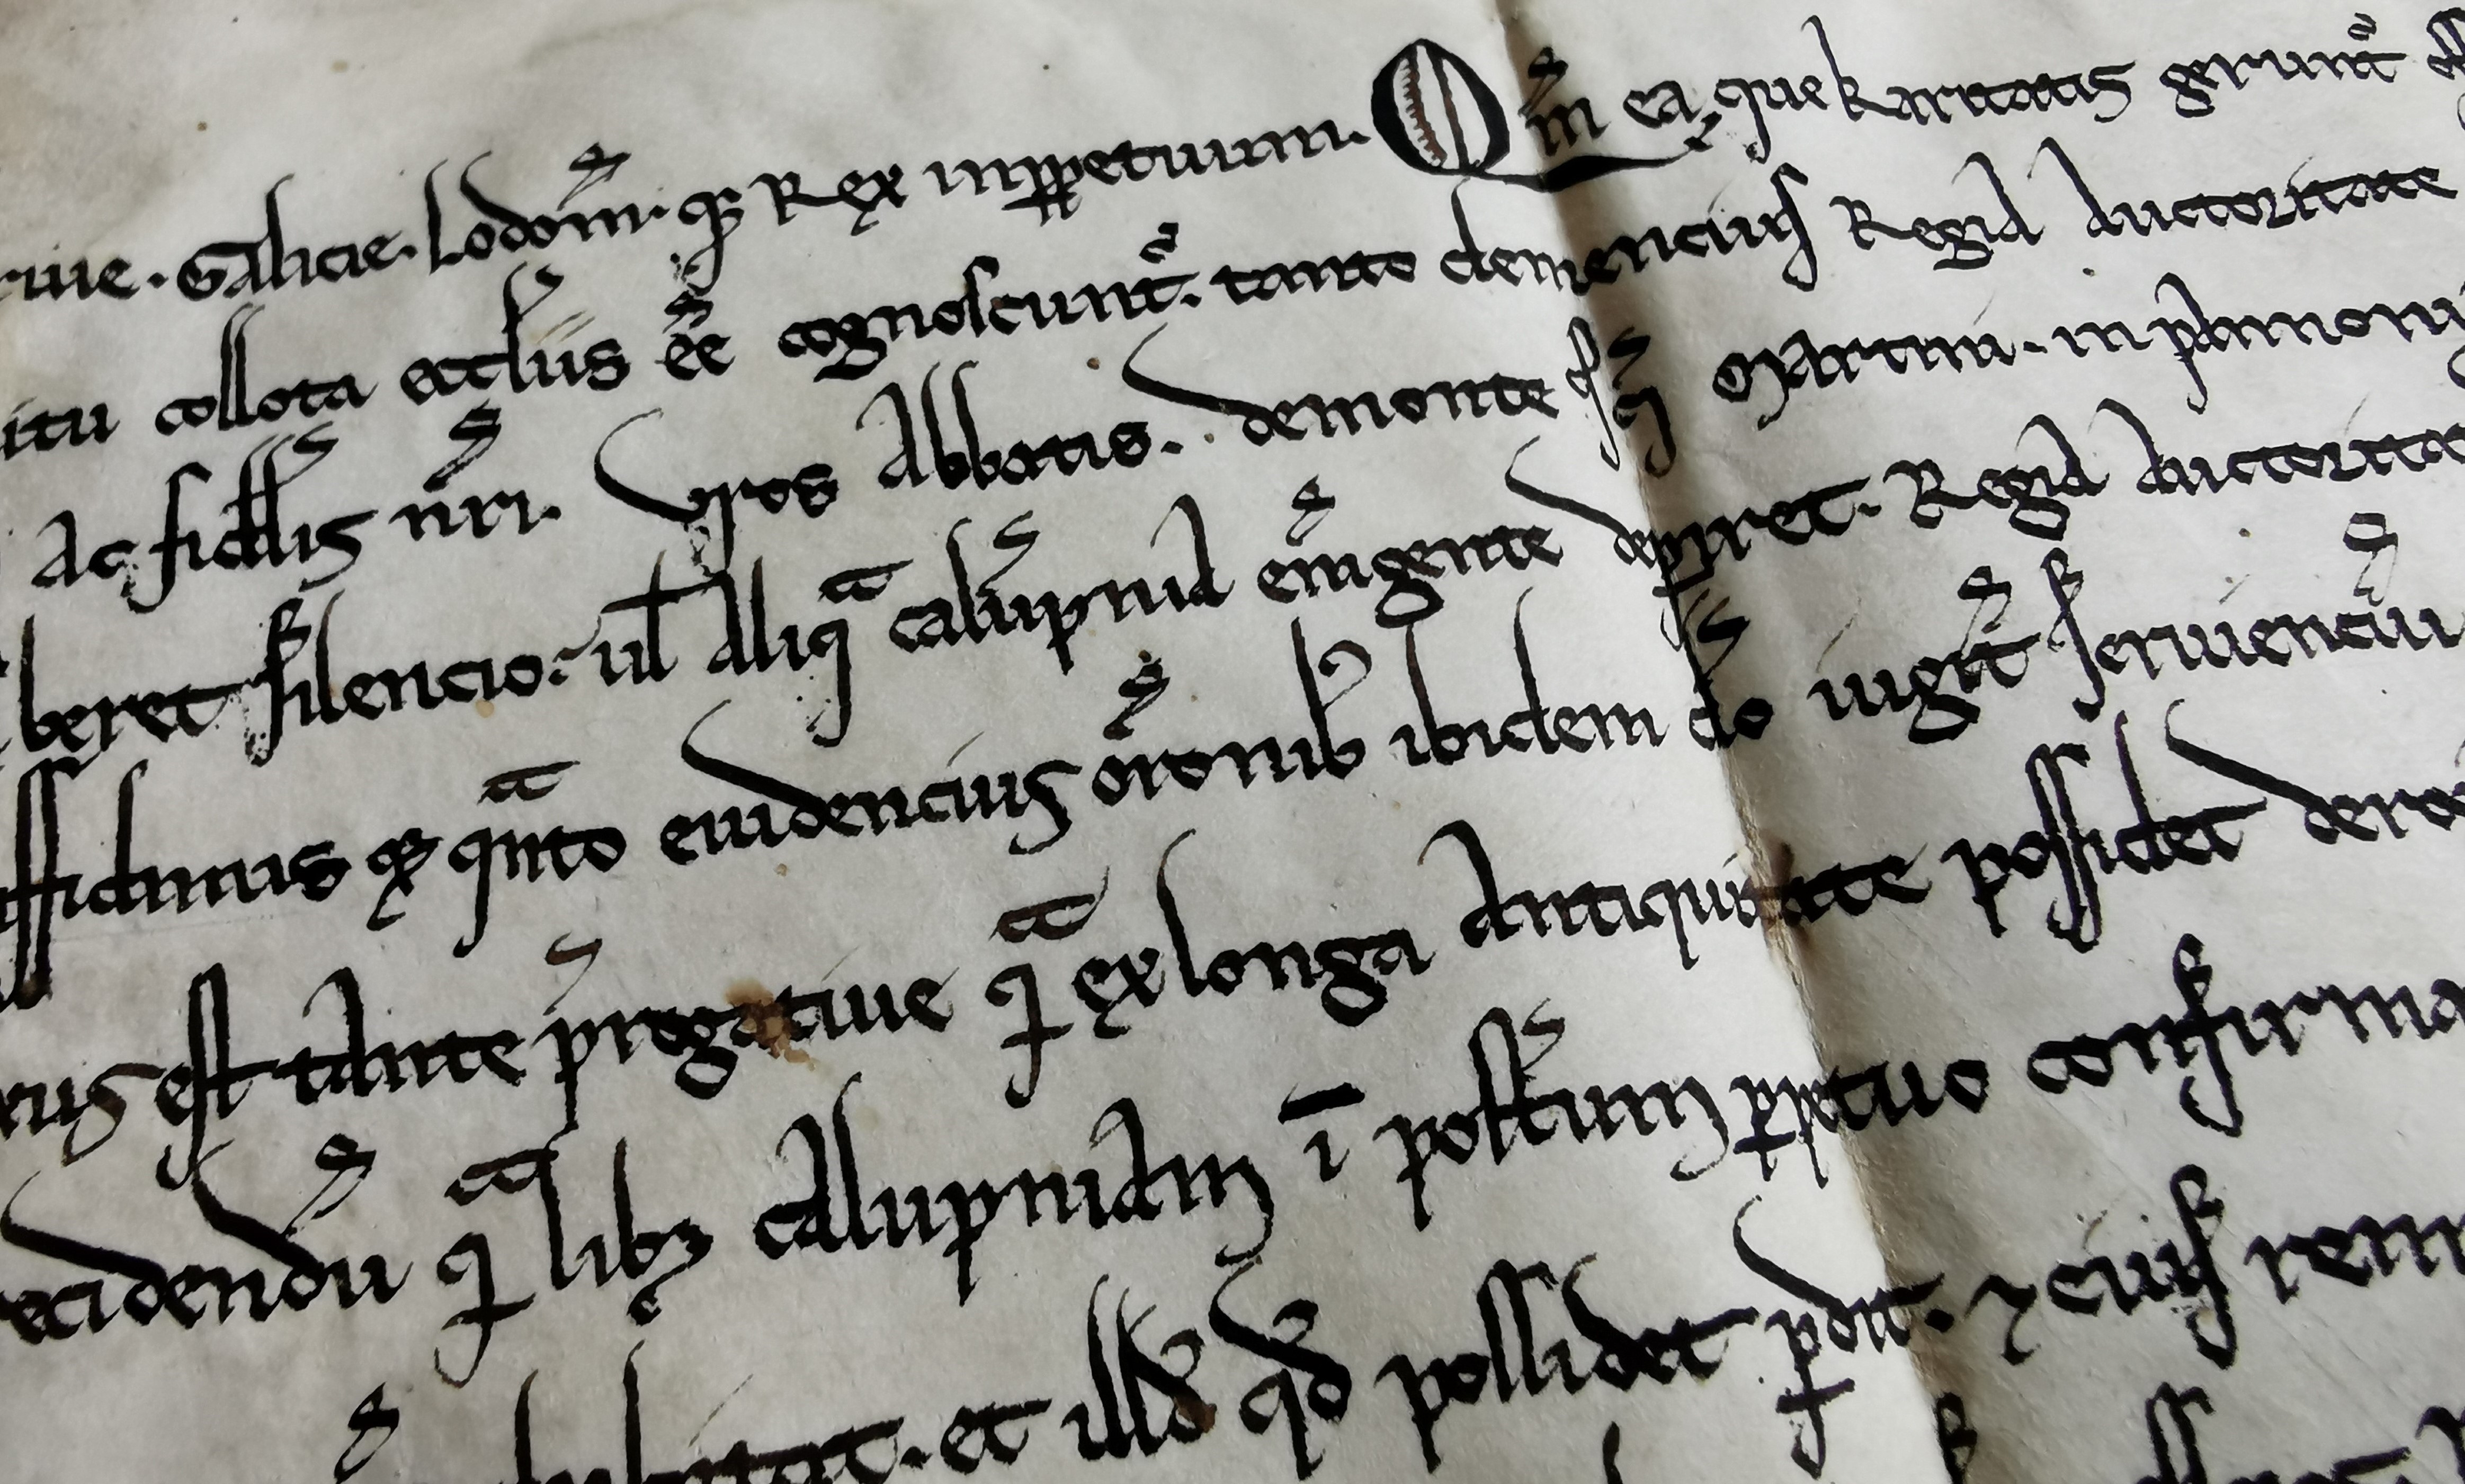 uie. Galicie. Lodom̅. q; Rex inppetuum. Qm̅ ea que karitatis gerunt᷑
itu collata eccl̅iis ee̅ cognoscunt᷑. tanto clemencius Regia auctoritate
Ac fidel̅is nr̅i. Vros Abbatis. demonte sc̅i Martini. in pannoni
beret silencio. ul̅ aliqͣ calu̅pnia em̅gente dep̲iret. Regia auctorita
ffidimus q; qͣnto euidencius or̅onib; ibidem do̅ iugit̅ seruienciu̅
rus est tante pr̅ogatiue qͣ ex longa Antiquitate possidet dero
ecidendu̅ qͣ lib; calupniam ī post̅um p̲petuo confirma
et illud qd̅ possidet p̲dit. ⁊ cuius rem